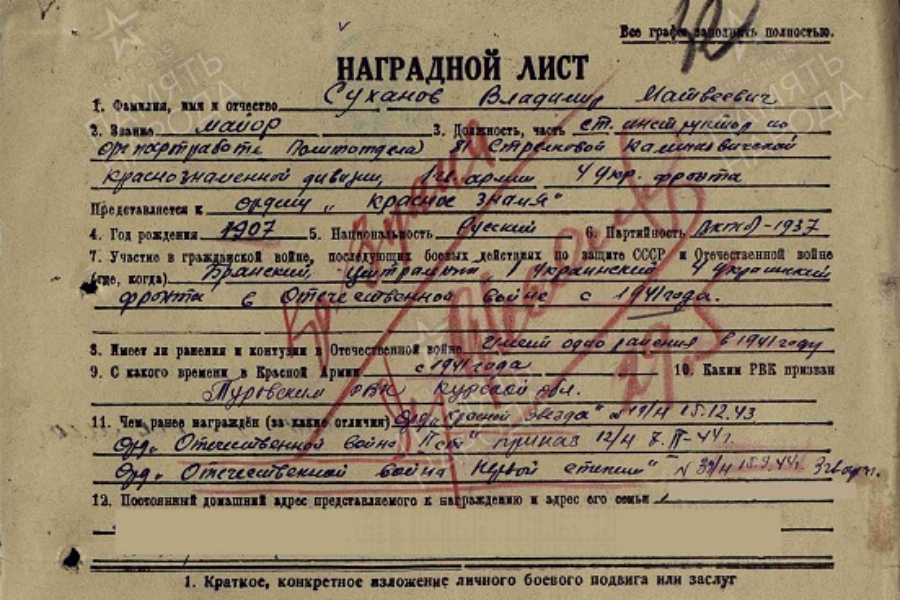 Все графы заполнять полностью.
НАГРАДНОЙ ЛИСТ
1. Фамилия, имя и отчество Суханов Владимир Матвеевич
2. Звание майор 3. Должность, часть ст. инструктор по
оргпартработе Политотдела 81 Стрелковой Калинковичской
Краснознаменной дивизии, армии 4 Укр. фронта
Представляется к ордену "Красное Знамя"
4. Год рождения 1907 5. Национальность Русский 6. Партийность 1937
7. Участие в гражданской войне, последующих боевых действиях по защите СССР и Отечественной войне
(где, когда) Брянский, Центральн 1 Украинский 4 Украинский
фронта в Отечественной войне с 1941 года.
8. Имеет ли ранения и контузии в Отечественной войне Имеет одно ранения в 1941 году
9. С какого времени в Красной Армии с 1941 года 10. Каким РВК призван
РВК Курской обл.
11. Чем ранее награждён (за какие отличия) Орд. "Красной Звезда" № 19/н 15.12.43
Орд. Отечественной война IIст" приказ 12/н 7.II-44г.
Орд. "Отечественной война первой степени" 15.9.44г.
12. Постоянный домашний адрес представляемого к награждению и адрес его семьи
1. Краткое, конкретное изложение личного боевого подвига или заслуг
29.5
ПАМЯТЬ НАРОДА